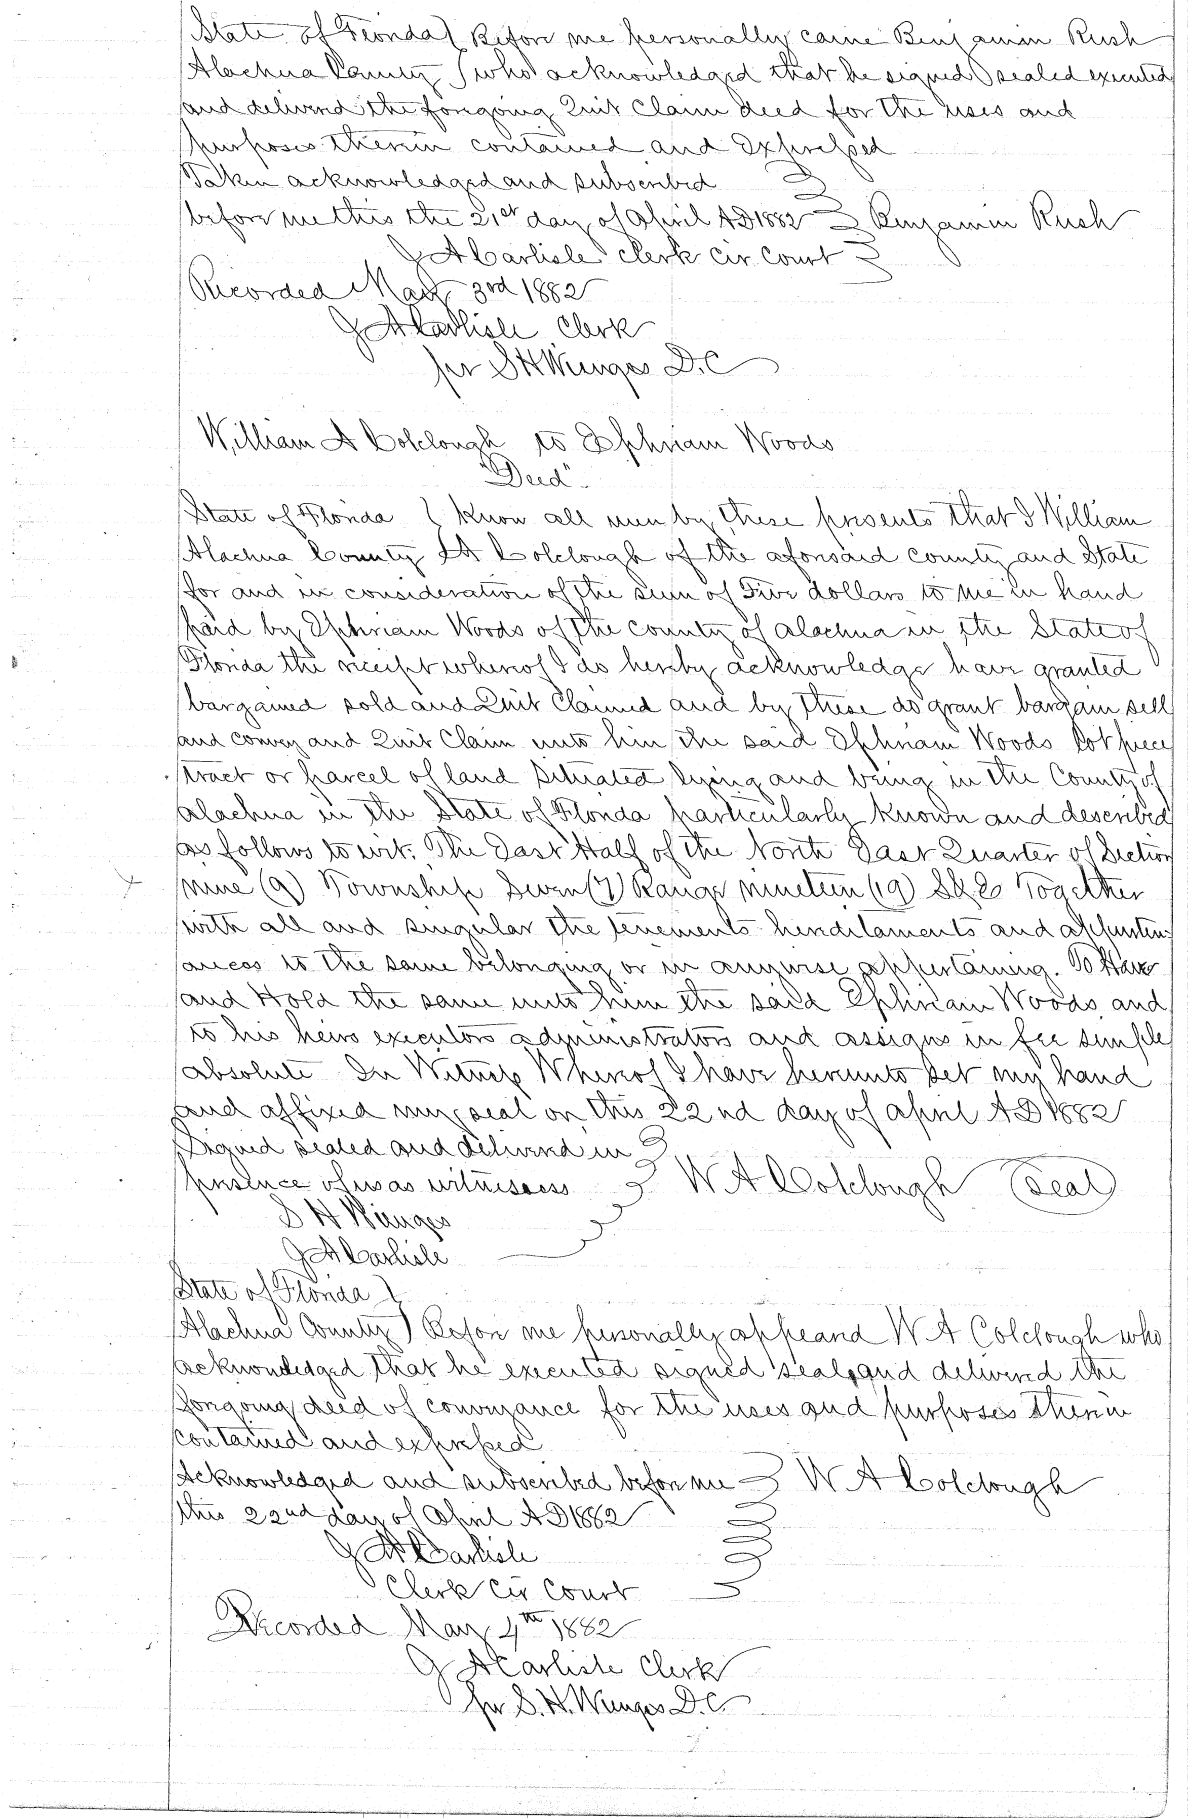 State of Florida } Before me personally came Benjamin Rush
Alachua County } who acknowledged that he signed sealed executed
and delivered the foregoing Quit Claim deed for the uses and
purposes therein contained and Expressed
Taken acknowledged and subscribed
before me this the 21st day of April AD 1882 } Benjamin Rush
J A Carlisle Clerk Cir Court
Recorded May 3rd 1882
J A Carlisle Clerk
per S H Wienges D.C
William A Colclough to Ephriam Woods
"Deed"
State of Florida } Know all men by these presents that I William
Alachua County } A Colclough of the aforesaid county and State
for and in consideration of the sum of Five dollars to me in hand
paid by Ephriam Woods of the county of Alachua in the State of
Florida the receipt whereof I do hereby acknowledge have granted
bargained sold and Quit Claimed and by these do grant bargain sell
and convey and Quit Claim unto him the said Ephriam Woods Lot piece
tract or parcel of land Situated lying and being in the County of
Alachua in the State of Florida particularly known and described
as follows to wit: The East Half of the North East Quarter of Section
nine (9) Township Seven (7) Range nineteen (19) S & E Together
with all and singular the tenements hereditaments and appurten
ances to the same belonging or in anywise appertaining. To Have
and Hold the same unto him the said Ephriam Woods and
to his heirs executors administrators and assigns in fee simple
absolute In Witness Whereof I have hereunto set my hand
and affixed my seal on this 22nd day of April AD 1882
Signed sealed and delivered in
presence of us as witnesses } W A Colclough (Seal)
S H Wienges
J A Carlisle
State of Florida }
Alachua County } Before me personally appeared W A Colclough who
acknowledged that he executed signed seal and delivered the
foregoing deed of conveyance for the uses and purposes therein
contained and expressed
Acknowledged and subscribed before me } W A Colclough
this 22nd day of April AD 1882
J A Carlisle
Clerk Cir Court
Recorded May 4th 1882
J A Carlisle Clerk
per S. H. Wienges D.C.